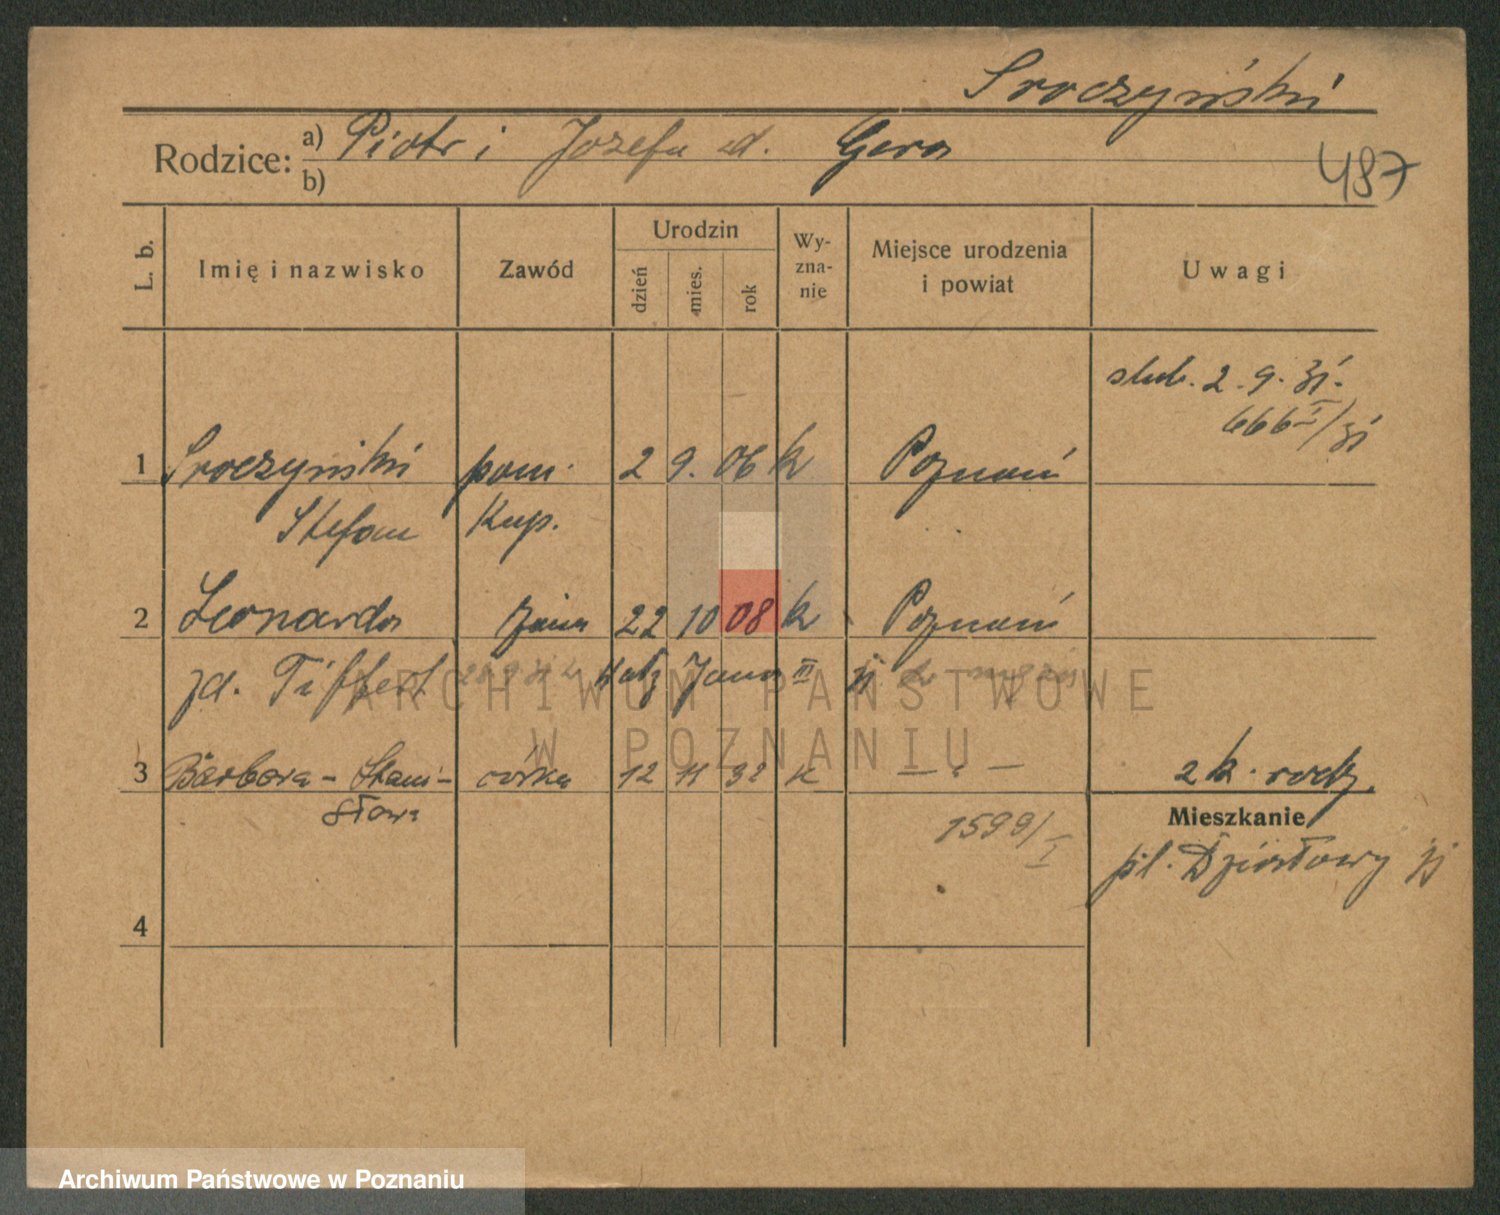 Sroczyński
Rodzice: a) Piotr i Józefa zd. Gera
b)
487
L. b.
Imię i nazwisko
Zawód
Urodzin
dzień
mies.
rok
Wy-
zna-
nie
Miejsce urodzenia
i powiat
Uwagi
ślub. 2. 9. 31.
666 I/31
1 Sroczyński pom. 2 9. 06 k Poznań
Stefan kup.
2 Leonarda żona 22 10 08 k Poznań
zd. Tiffert
3 Barbara - Stani- córka 12 11 32 k — " —
sława
2 k. rodz.
Mieszkanie
1599/I
pl. Działowy
4
ARCHIWUM PAŃSTWOWE
W POZNANIU
Archiwum Państwowe w Poznaniu